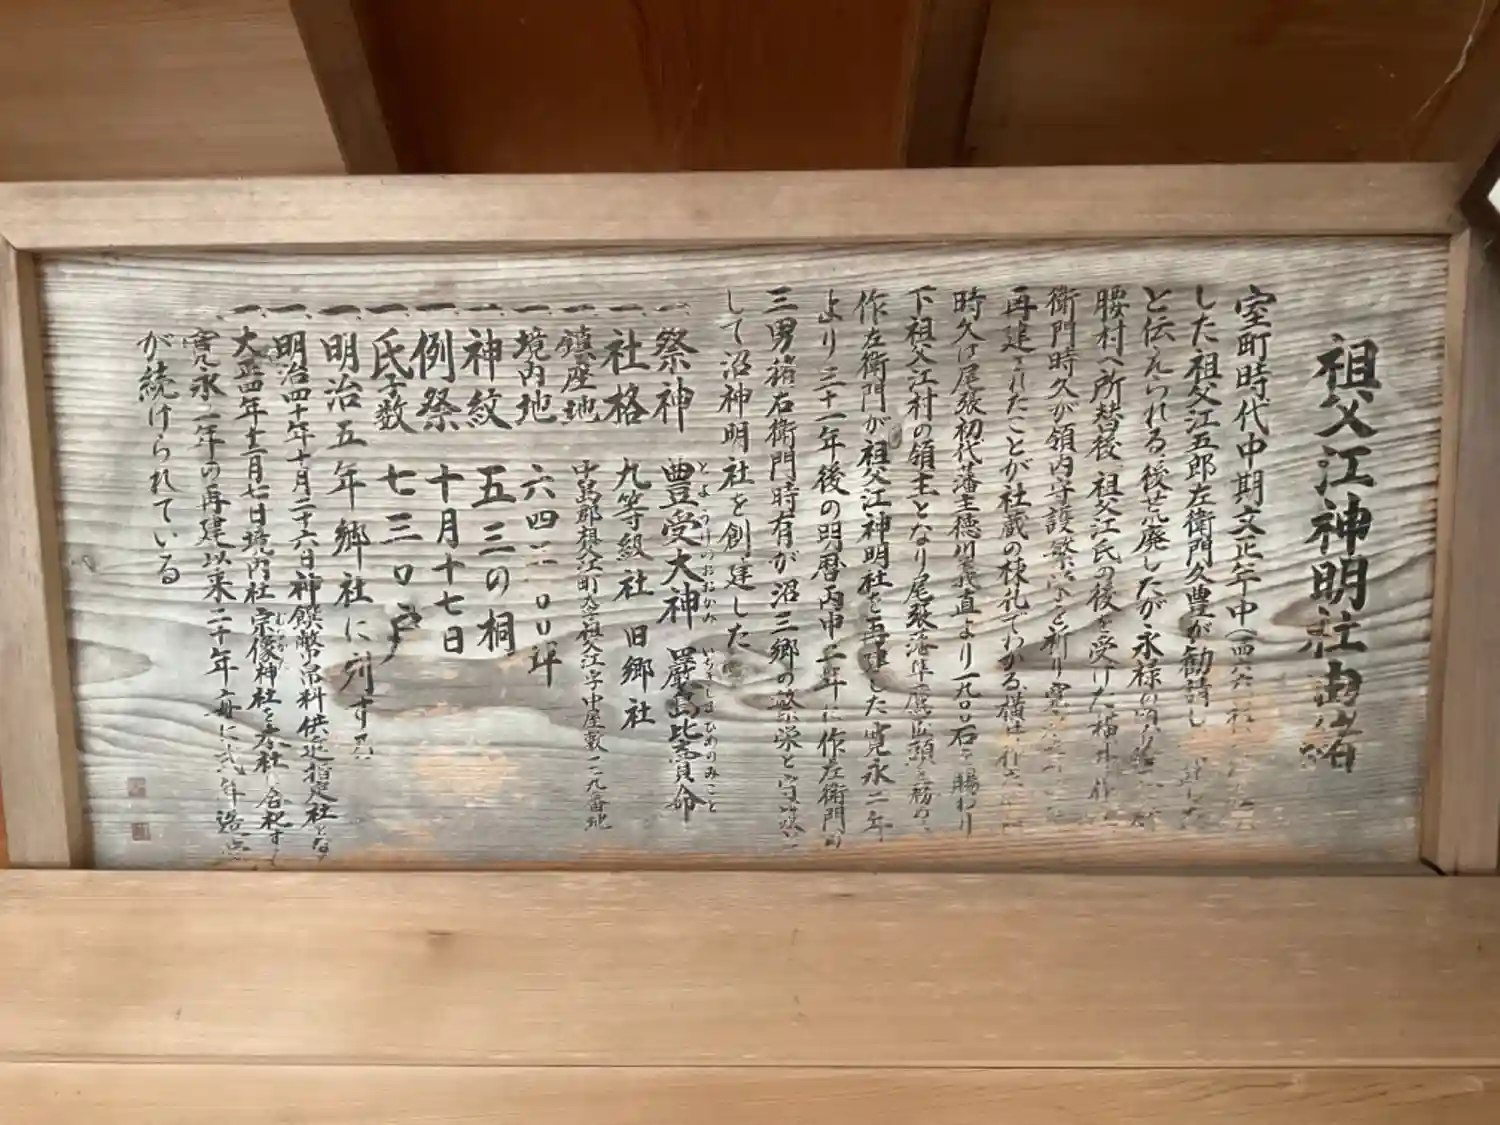 祖父江神明社由緒
室町時代中期文正年中(一四六六
した祖父江五郎左衛門久豊が勧請し
と伝えられる 後世荒廃したが永禄の
腰村へ所替後 祖父江氏の後を受けた横井作
衛門時久が領内守護繁栄を祈り寛
再建されたことが社蔵の棟札でわかる 横井作
時久は尾張初代藩主徳川義直より一九〇〇石を賜わり
下祖父江村の領主となり尾張藩
作左衛門が祖父江神明社を再建した寛永二年
より三十一年後の明暦丙申二年に作左衛門の
三男 右衛門時有が沼三郷の繁栄と守護
して沼神明社を創建した
一、祭神 豊受大神 とようけのおおかみ 厳島比売命 いちきしまひめのみこと
一、社格 九等級社 旧郷社
一、鎮座地 中島郡祖父江町大字祖父江字中屋敷一二九番地
一、境内地 六四二.〇〇坪
一、神紋 五三の桐
一、例祭 十月十七日
一、氏子数 七三〇戸
一、明治五年郷社に列す
一、明治四十年十月二十六日神饌幣帛料供進指定社となる
一、大正四年十二月七日境内社 宗像神社を本社に合祀す
寛永二年の再建以来二十年毎に式年造営
が続けられている